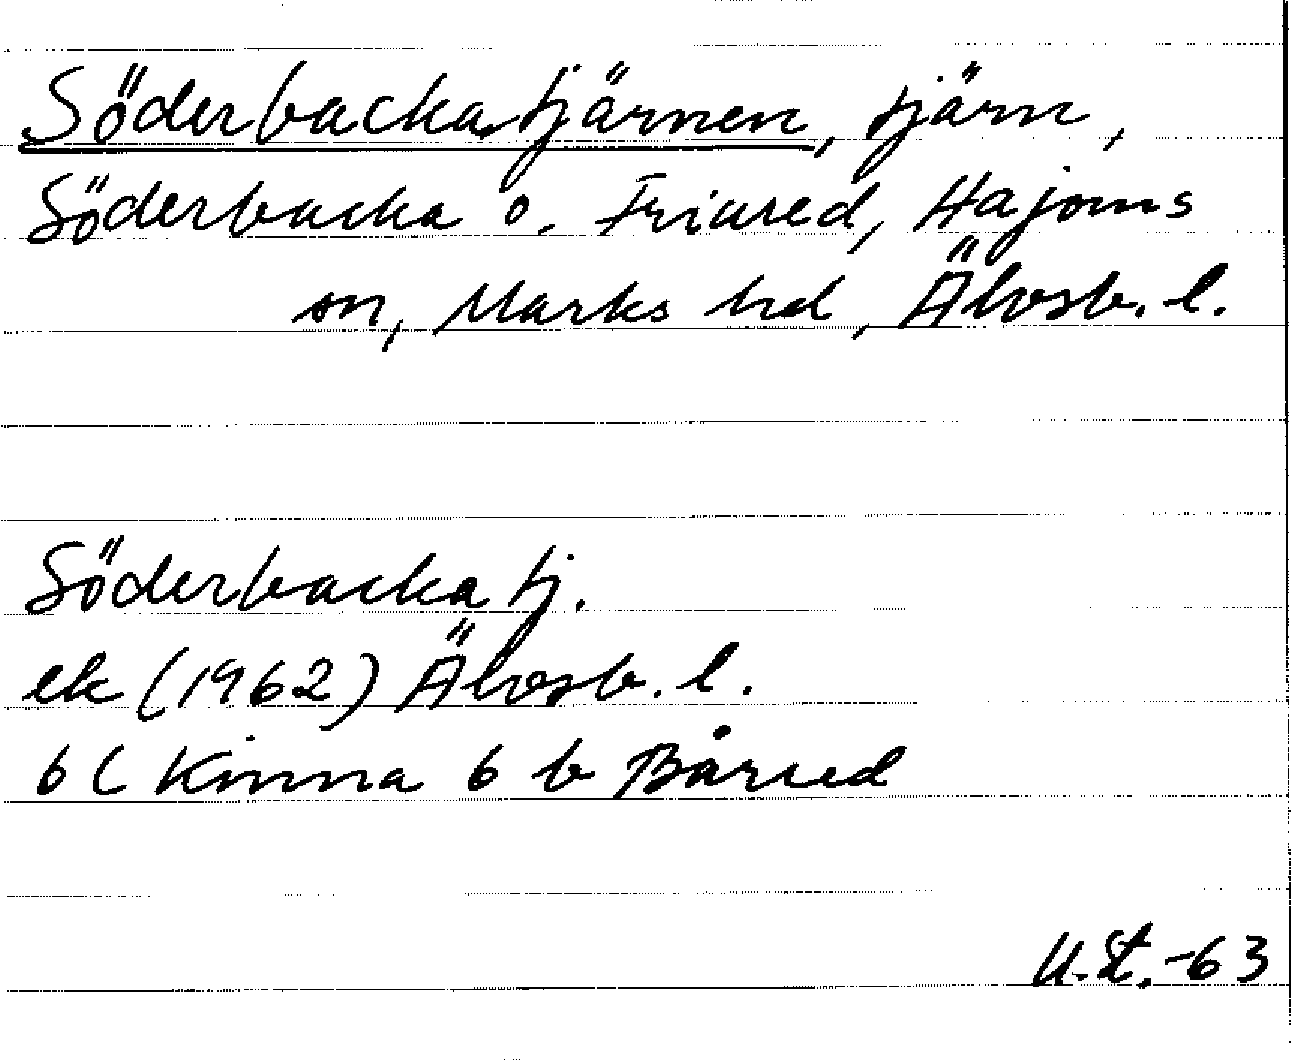 Söderbackatjärnen, tjärn,
Söderbacka o. Friared, Hajoms
sn, Marks hd, Älvsb. l.
Söderbacka tj.
ek (1962) Älvsb. l.
6 C Kinna 6 b Bårred
-63